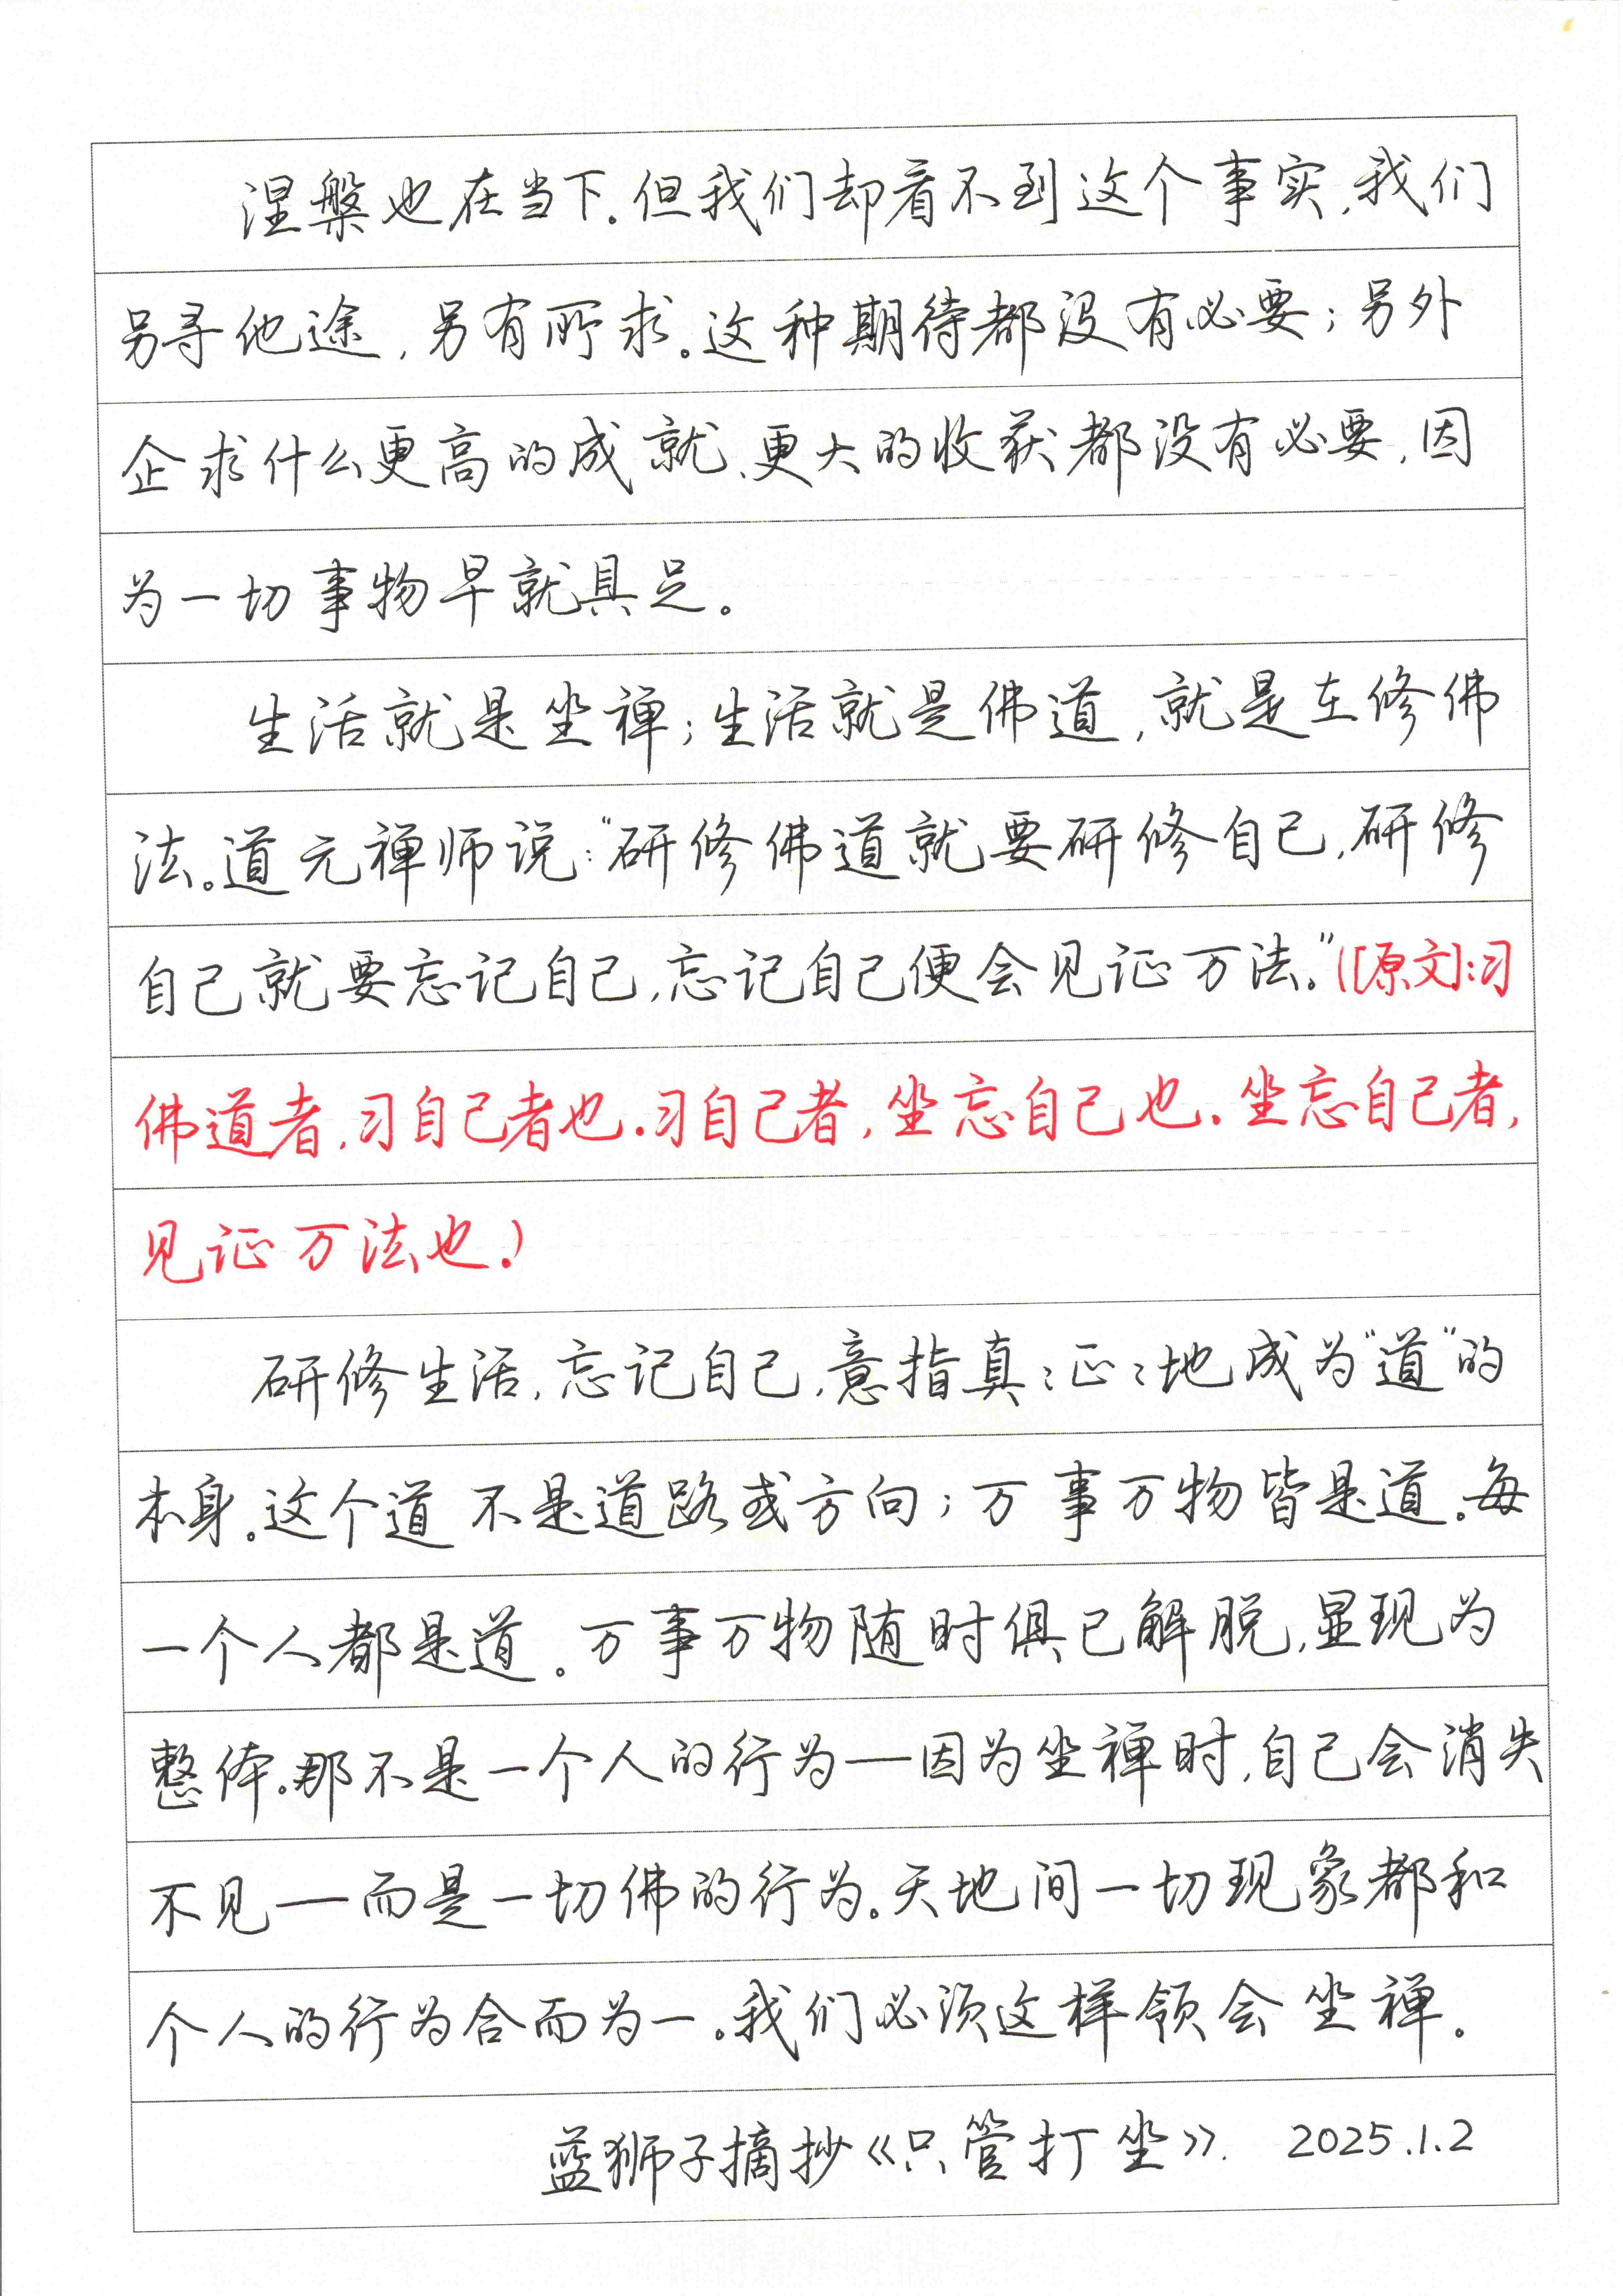 涅槃也在当下。但我们却看不到这个事实，我们
另寻他途，另有所求。这种期待都没有必要；另外
企求什么更高的成就、更大的收获都没有必要，因
为一切事物早就具足。
生活就是坐禅；生活就是佛道，就是在修佛
法。道元禅师说：“研修佛道就要研修自己，研修
自己就要忘记自己，忘记自己便会见证万法。”([原文]：习
佛道者，习自己者也．习自己者，坐忘自己也．坐忘自己者，
见证万法也．)
研修生活，忘记自己，意指真：正：地成为“道”的
本身。这个道不是道路或方向；万事万物皆是道。每
一个人都是道。万事万物随时俱已解脱，显现为
整体。那不是一个人的行为——因为坐禅时，自己会消失
不见——而是一切佛的行为。天地间一切现象都和
个人的行为合而为一。我们必须这样领会坐禅。
蓝狮子摘抄《只管打坐》． 2025.1.2